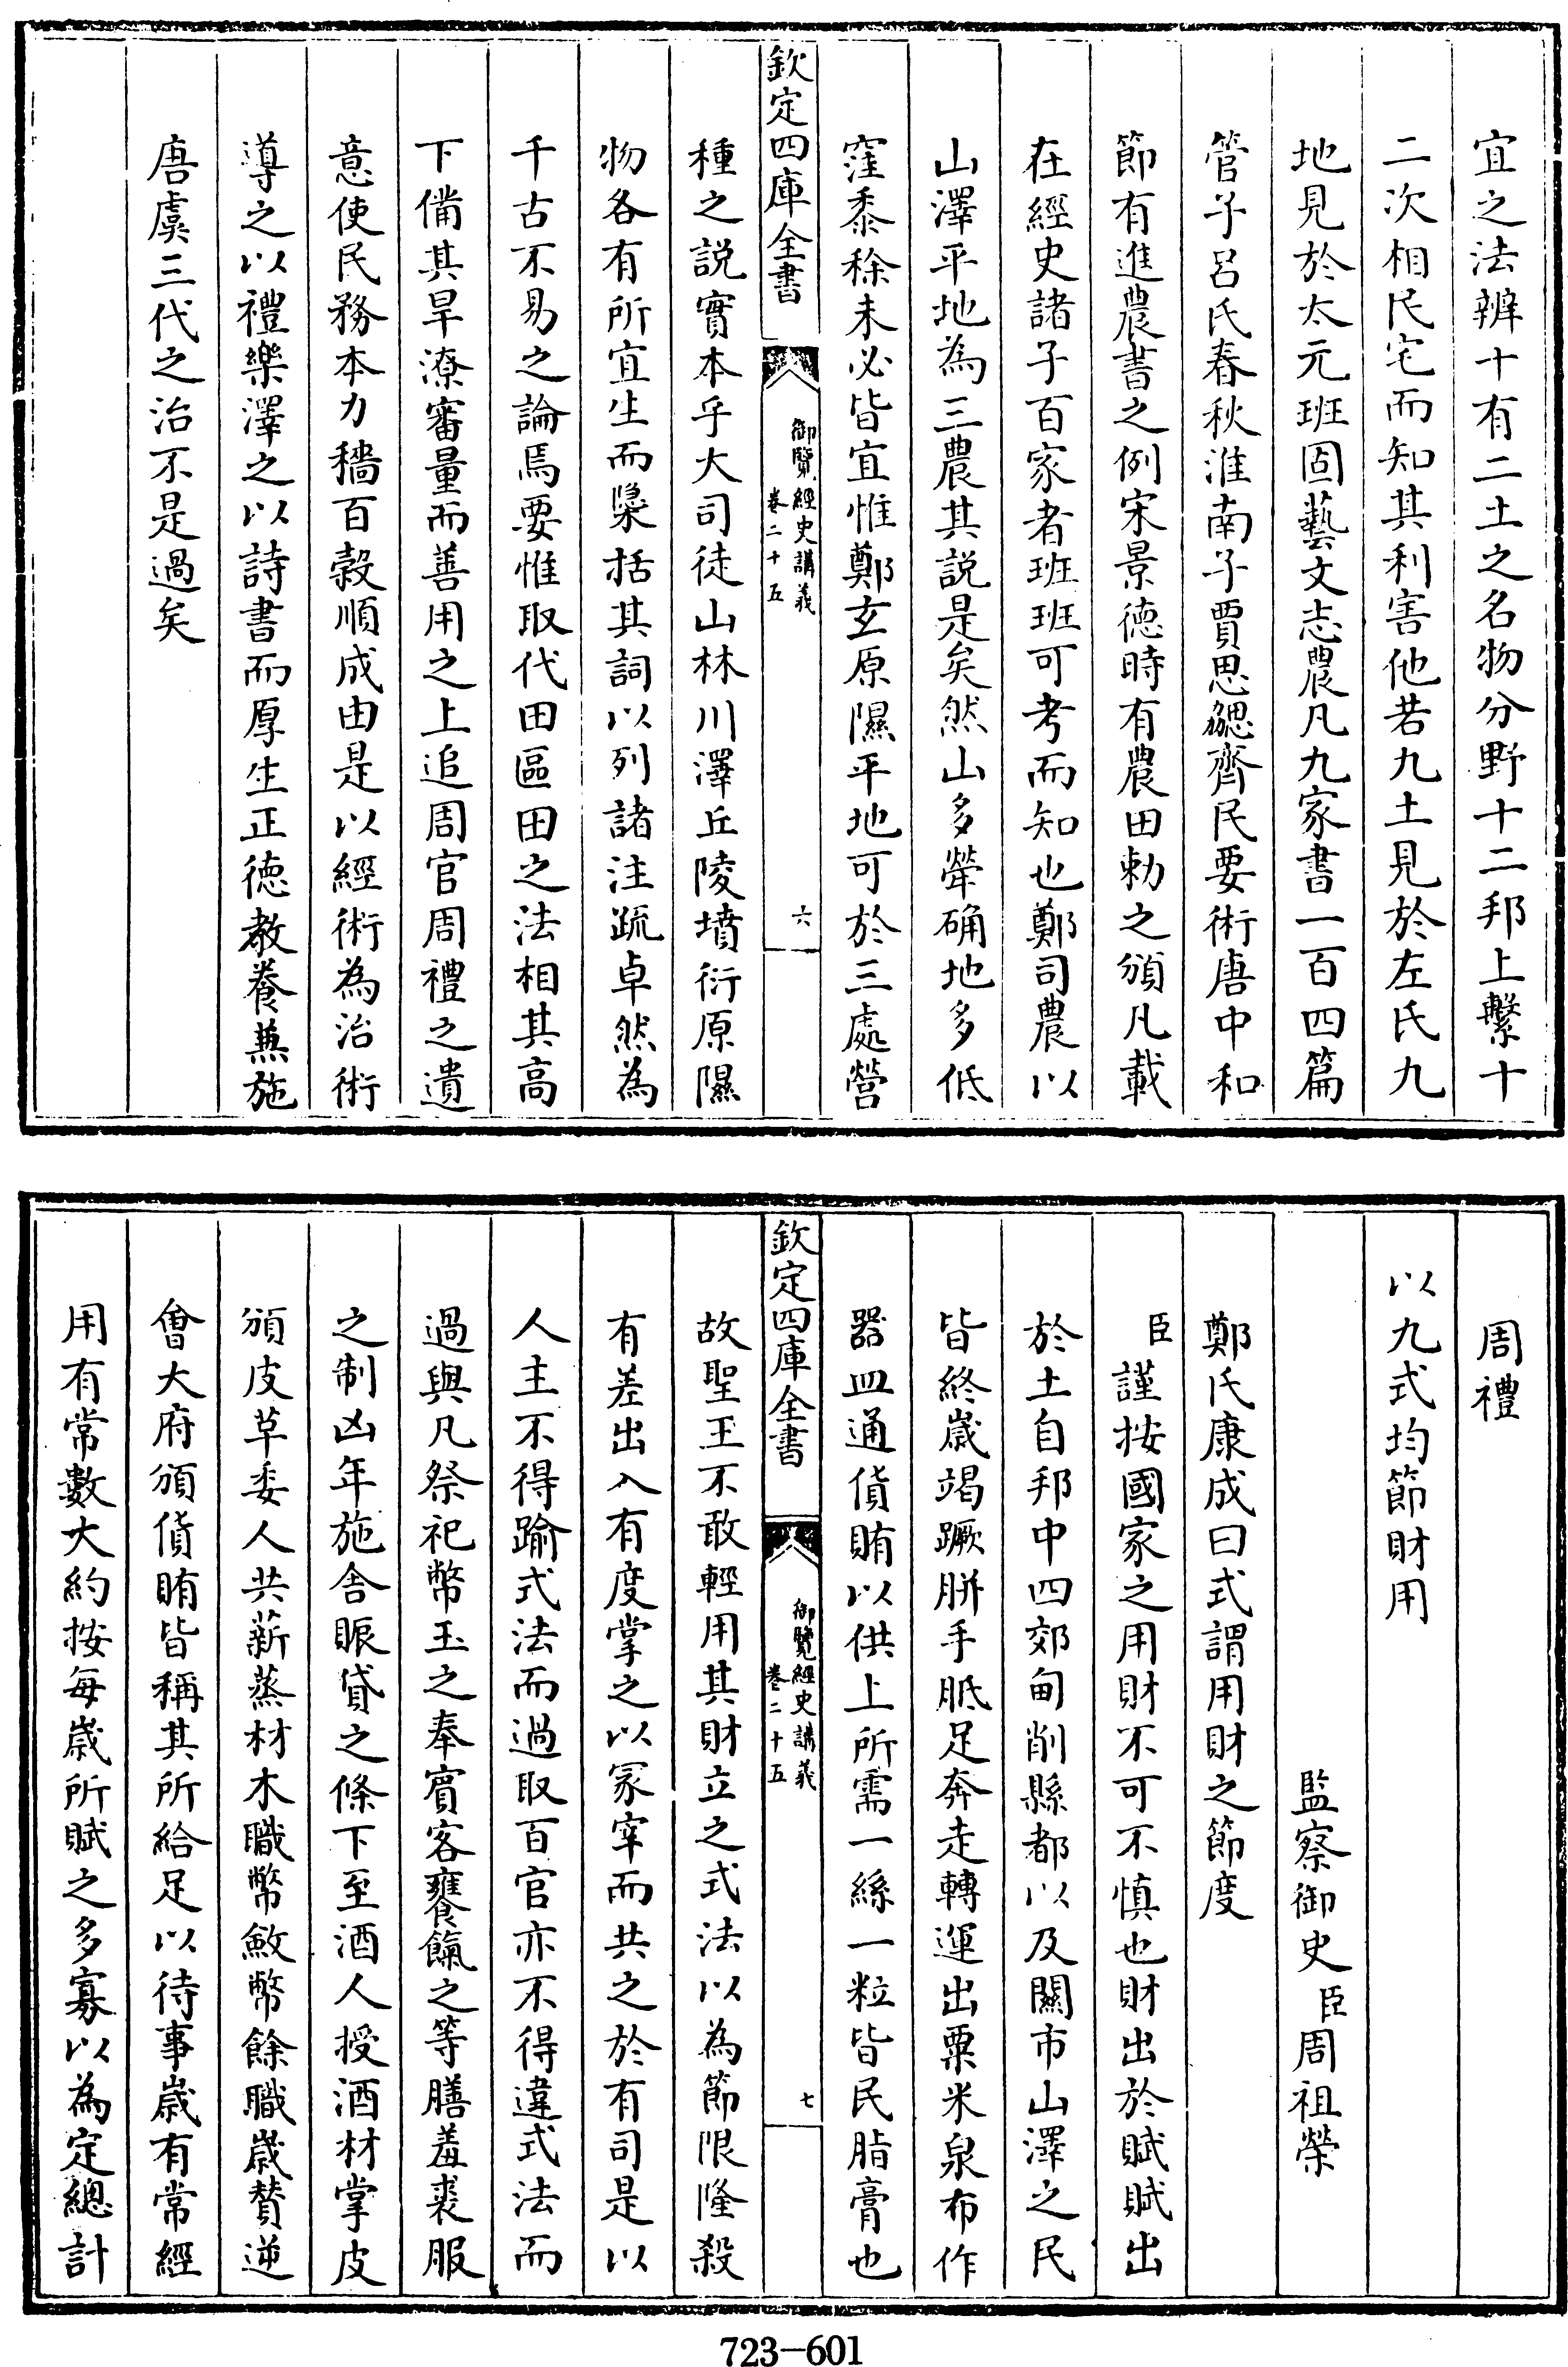 宜之法辨十有二土之名物分野十二邦上繫十
二次相民宅而知其利害他若九土見於左氏九
地見於太元班固藝文志農凡九家書一百四篇
管子呂氏春秋淮南子賈思勰齊民要術唐中和
節有進農書之例宋景德時有農田勅之頒凡載
在經史諸子百家者班班可考而知也鄭司農以
山澤平地為三農其説是矣然山多犖确地多低
窪黍稌未必皆宜惟鄭玄原隰平地可於三處營
欽定四庫全書
御覽經史講義
卷二十五
六
種之説實本乎大司徒山林川澤丘陵墳衍原隰
物各有所宜生而檃括其詞以列諸注疏卓然為
千古不易之論焉要惟取代田區田之法相其高
下備其旱潦審量而善用之上追周官周禮之遺
意使民務本力穡百穀順成由是以經術為治術
導之以禮樂澤之以詩書而厚生正徳教養兼施
唐虞三代之治不是過矣
周禮
以九式均節財用
監察御史臣周祖榮
鄭氏康成曰式謂用財之節度
臣謹按國家之用財不可不慎也財出於賦賦出
於土自邦中四郊甸削縣都以及關市山澤之民
皆終歲竭蹶胼手胝足奔走轉運出粟米泉布作
器皿通貨賄以供上所需一絲一粒皆民脂膏也
欽定四庫全書
御覽經史講義
卷二十五
七
故聖王不敢輕用其財立之式法以為節限隆殺
有差出入有度掌之以冢宰而共之於有司是以
人主不得踰式法而過取百官亦不得違式法而
過與凡祭祀幣玉之奉賓客饔餼之等膳羞裘服
之制凶年施舍賑貸之條下至酒人授酒材掌皮
頒皮草委人共薪蒸材木職幣斂幣餘職歲賛逆
會大府頒貨賄皆稱其所給足以待事歲有常經
用有常數大約按每歲所賦之多寡以為定總計
723-601